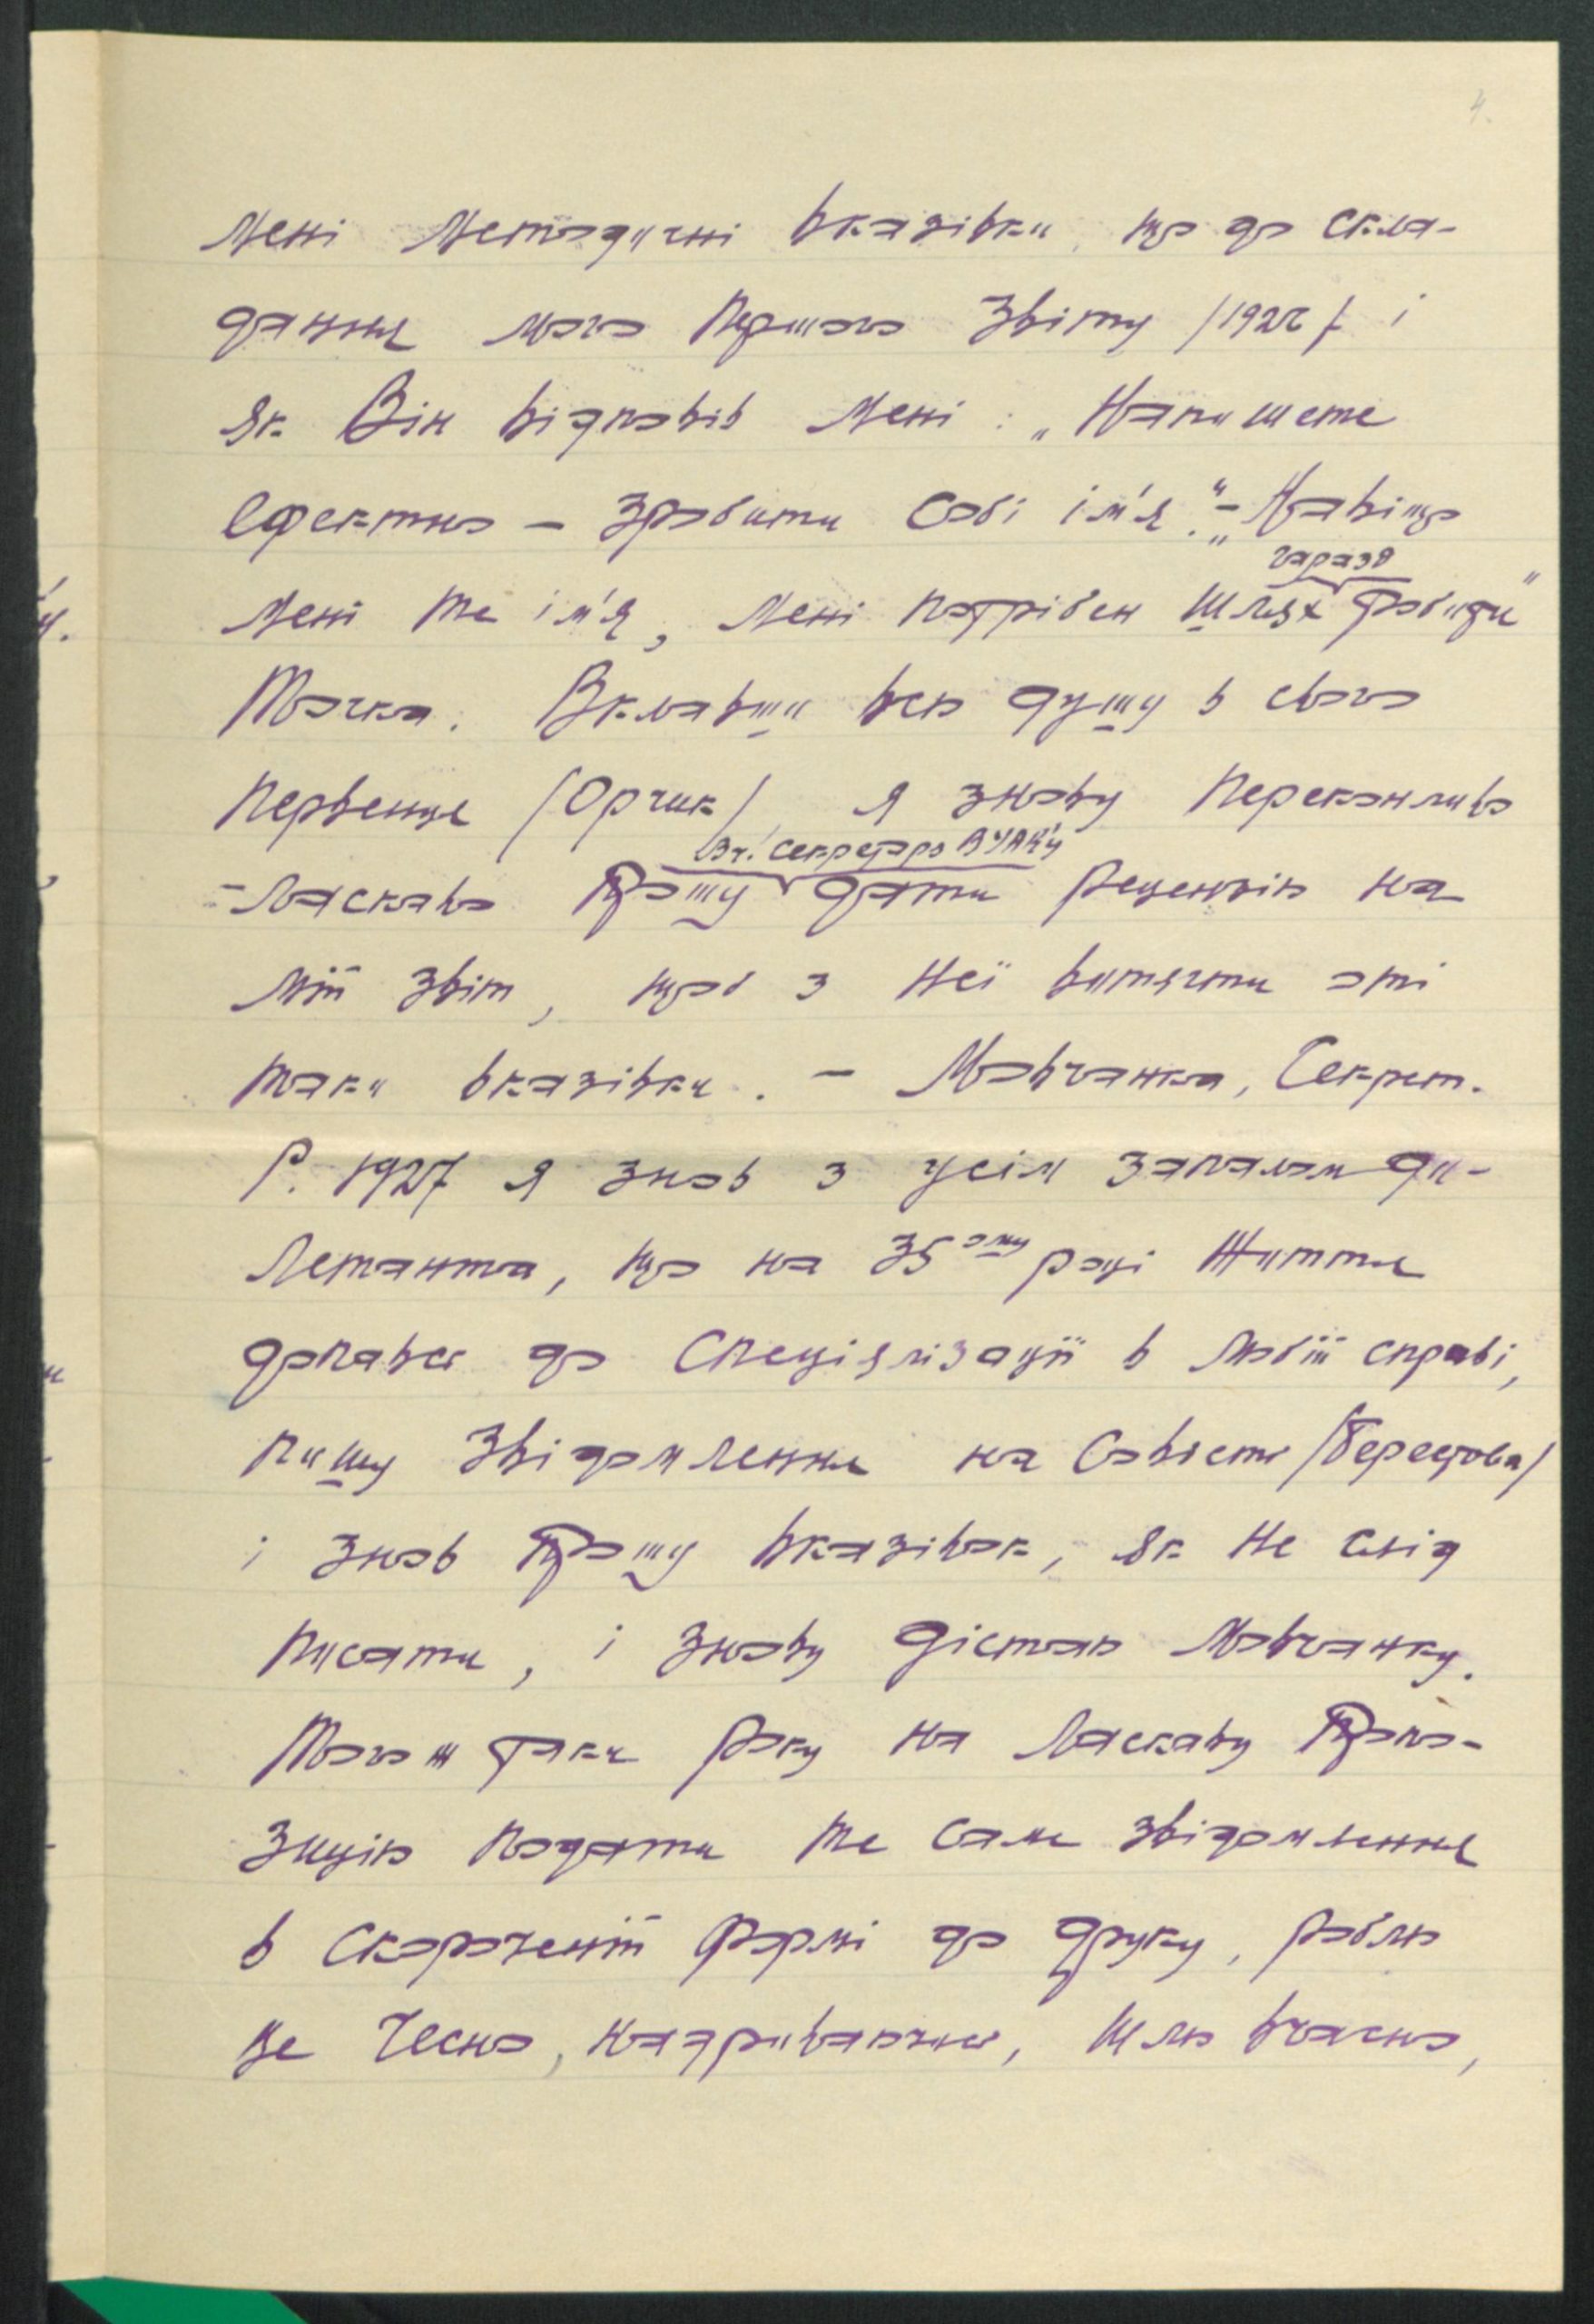 4.
мені методичні вказівки, що до скла-
дання мого першого звіту /1922/ і
як Він відповів мені: „Напишете
ефектно – зробити собі ім'я." – „Навіщо
гаразд
мені те ім'я, мені потрібен шлях робити"
Точка. Вклавши всю душу в свого
первенця /Орчик/, я знову переконливо
Вч. Секретаря ВУАК'у
– ласкаво прошу дати рецензію на
мій звіт, щоб з неї витягти оті
таки вказівки. – Мовчанка, Секрет.
Р. 1927 я знов з усім запалом ди-
летанта, що на 35ому році життя
допався до спеціялізації в любій справі,
пишу звідомлення на совість /Берестова/
і знов прошу вказівок, як не слід
писати, і знову дістаю мовчанку.
Того ж таки року на ласкаву пропо-
зицію подати те саме звідомлення
в скороченій формі до друку, роблю
це чесно, надриваючись, шлю вчасно,